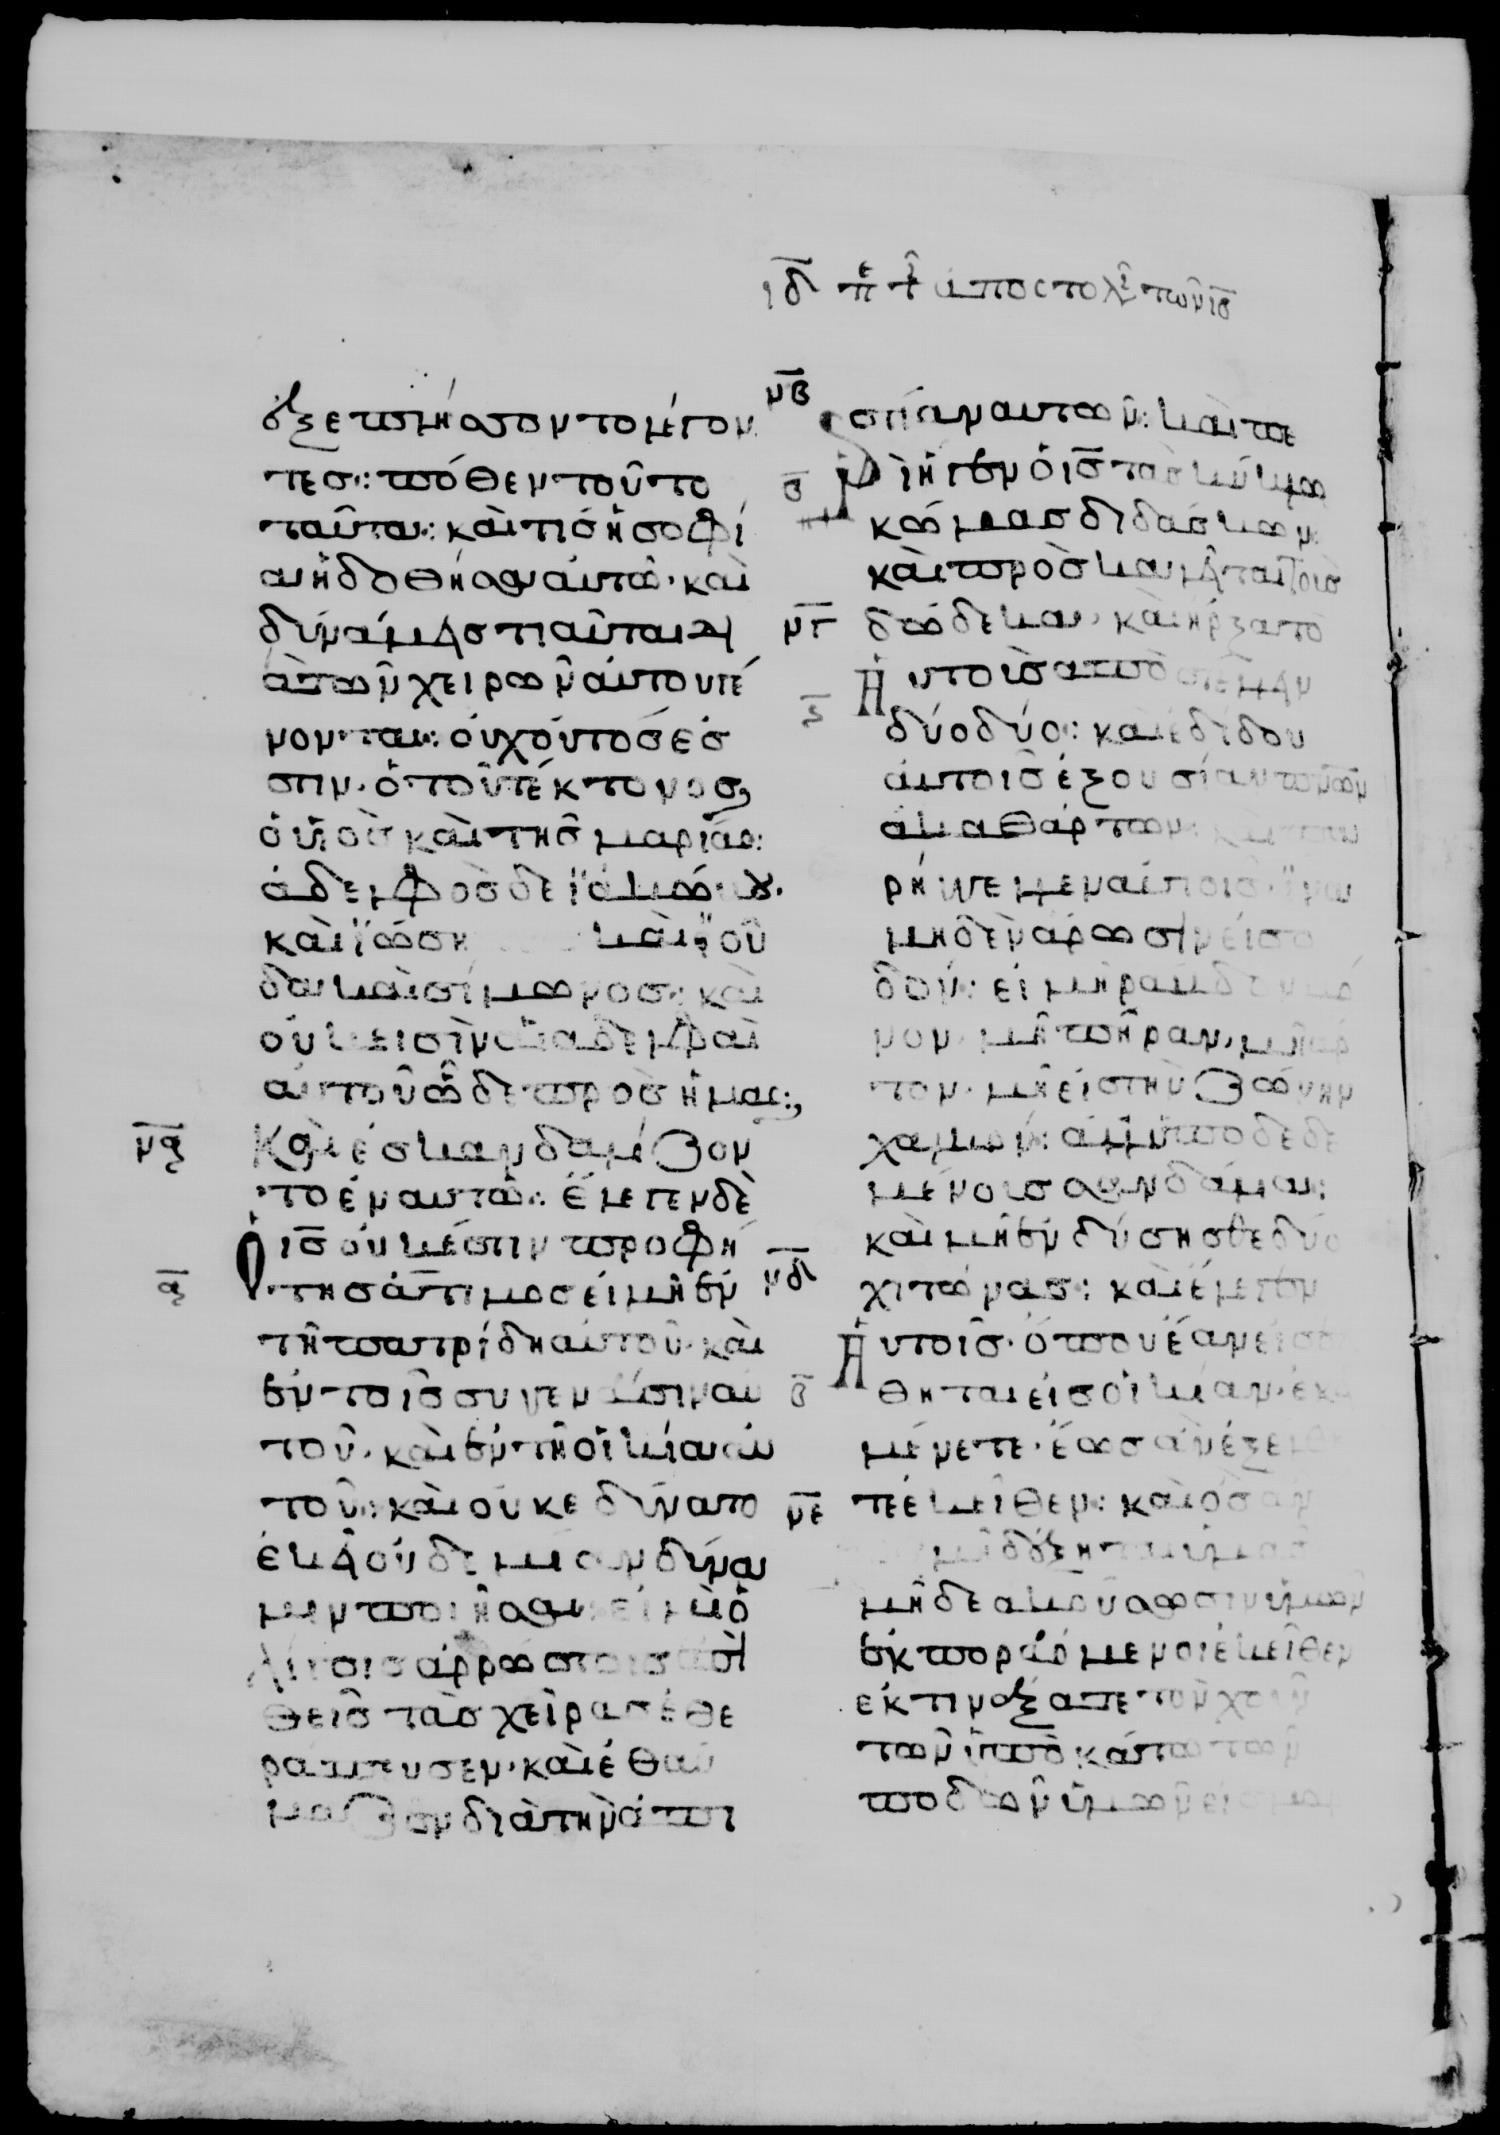 ιδ πε τ αποστολ τῶν ιβ
ἐξεπλήσσοντο λέγον
τες: πόθεν τούτω
ταῦτα: καὶ τίς ἡ σοφί
α ἡ δοθῆσα αὐτῶ· καὶ
δυνάμεις τιαῦται δι
ὰ τῶν χειρῶν αὐτοῦ γί
νονται: οὐχ οὗτός ἐσ
τιν· ὁ τοῦ τέκτονος
ὁ υἱὸς καὶ τῆς μαρίας:
ἀδελφὸς δὲ ϊακώβου.
καὶ ϊωσῆ καὶ ϊού
δα καὶ σίμωνος: καὶ
οὐκ εἰσὶν αἱ ἀδελφαὶ
αὐτοῦ ὧδε πρὸς ἡμας:
να Καὶ ἐσκανδαλίζον
το ἐν αὐτῶ: ἔλεγεν δὲ
ὁ ις οὐκ ἔστιν προφή
α της ἄτιμος εἰ μὴ ἐν
τῆ πατρίδη αὐτοῦ· καὶ
ἐν τοῖς συγγενέσιν αὐ
τοῦ· καὶ ἐν τῆ οἰκία αὐ
τοῦ: καὶ οὐκ εδύνατο
ἐκεῖ οὐδεμίαν δύνα
μιν ποιῆσαι· εἰ μὴ ὀ
λίγοις ἀρρώστοις ἐπι
θεὶς τὰς χεῖρας ἐθε
ράπευσεν· καὶ ἐθαύ
μαζεν διὰ τὴν ἀπι
νβ στίαν αὐτῶν: καὶ πε
ϛ ριῆγεν ὁ ις τὰς κύκλω
κώμας διδάσκων:
καὶ προσκαλεῖται τοὺς
νγ δώδεκα· καὶ ἤρξατο
αὐτοὺς ἀποστέλλειν
δύο δύο: καὶ ἐδίδου
αὐτοῖς ἐξουσίαν τῶν πνῶν
ἀκαθάρτων: καὶ παρ
ήγγειλεν αὐτοῖς· ἵνα
μηδὲν ἄρωσιν εἰς ὁ
δόν: εἰ μὴ ράβδον μό
νον· μὴ πήραν· μὴ ἄρ
τον· μὴ εἰς τὴν ζώνην
χαλκόν: ἀλλ' ὑποδεδε
μένοις σανδάλια:
καὶ μὴ ἐνδύσησθε δύο
νδ χιτώνας: καὶ ἔλεγεν
αὐτοῖς· ὅπου ἐὰν εἰσέλ
β θηται εἰς οἰκίαν· ἐκεῖ
μένετε· ἕως ἂν ἐξέλθη
νε τε ἐκεῖθεν: καὶ ὅσοι ἂν
μὴ δέξηται ὑμᾶς
μηδὲ ἀκούσωσιν ὑμῶν
ἐκπορευόμενοι ἐκεῖθεν
ἐκτινάξαπε τὸν χοῦν
τῶν ὑποκάτω τῶν
ποδῶν ὑμῶν εἰς μαρ